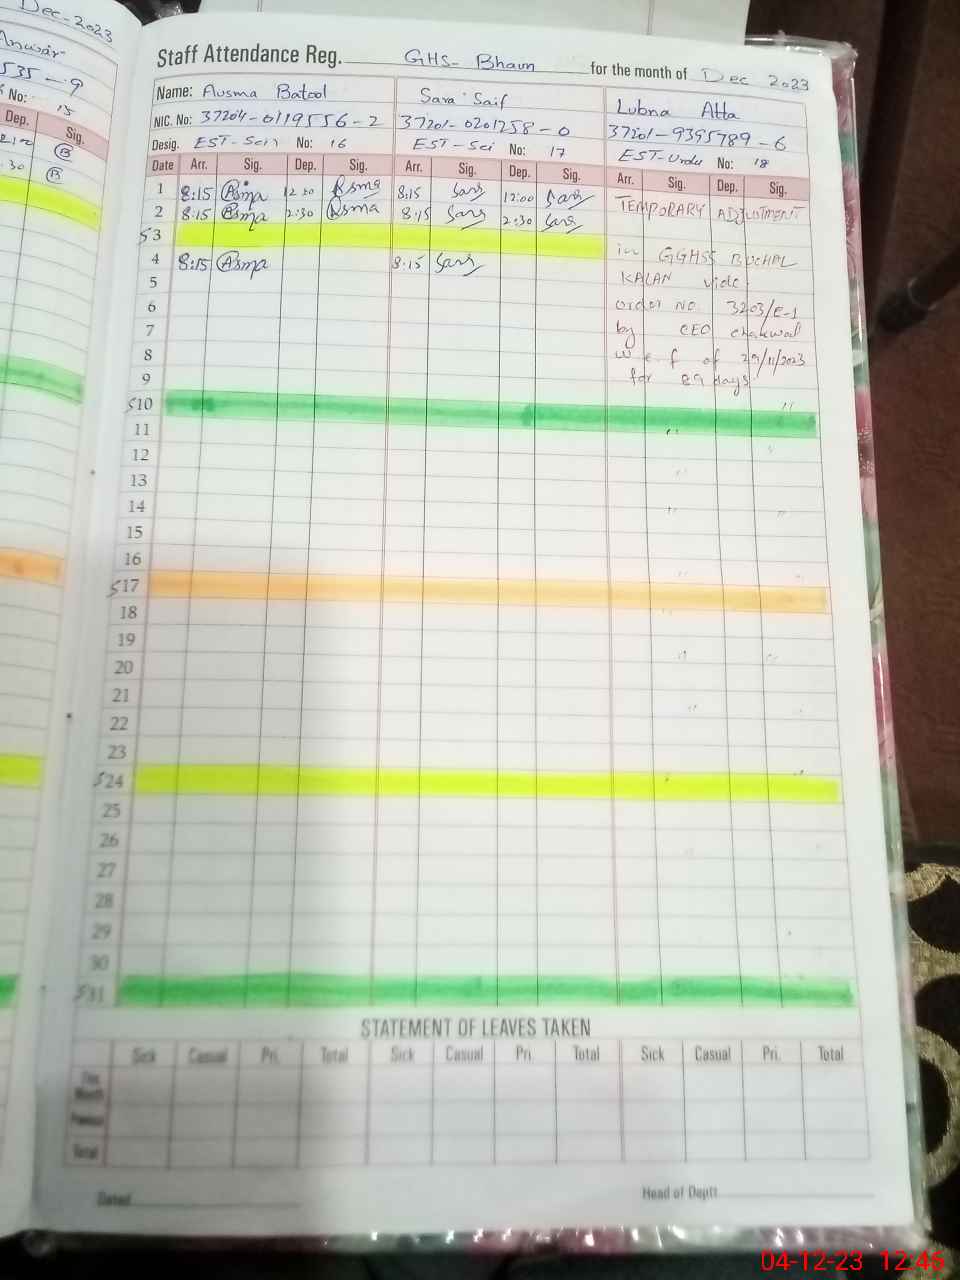 Dec-2023
Anwar
535-9
No: 15
Dep. Sig.
Staff Attendance Reg. GHS- Bhaun for the month of Dec 2023
Name: Ausma Batool Sara Saif Lubna Atta
NIC. No: 37204-0119556-2 37201-0201258-0 37201-9395789-6
Desig. EST-Sci No: 16 EST-Sci No: 17 EST-Urdu No: 18
Date Arr. Sig. Dep. Sig. Arr. Sig. Dep. Sig. Arr. Sig. Dep. Sig.
1 8:15 Asma 12:30 Asma 8:15 Sara 12:00 Sara TEMPORARY ADJUSTMENT
2 8:15 Asma 2:30 Asma 8:15 Sara 2:30 Sara
S3 in GGHSS BUCHAL
4 8:15 Asma 8:15 Sara KALAN vide
5
6 order No 3203/E-1
7 by CEO chakwal
8 w e f of 29/11/2023
9 for 89 days
S10 "
11 "
12
13 "
14 " "
15
16 " "
S17
18
19
20 " "
21
22 "
23
S24
25
26
27
28
29
30
S31
STATEMENT OF LEAVES TAKEN
Sick Casual Pri. Total Sick Casual Pri. Total Sick Casual Pri. Total
This Month
Previous
Total
Dated
Head of Deptt
04-12-23 12:46